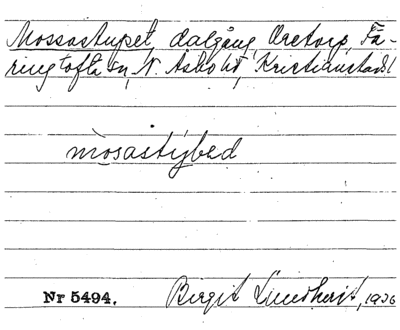 Mossastupet, dalgång, Oretorp, Fä-
ringtofta sn, N. Åsbo hd, Kristianstads l
mosastýbed
Nr 5494.
Birgit Lundquist, 1936